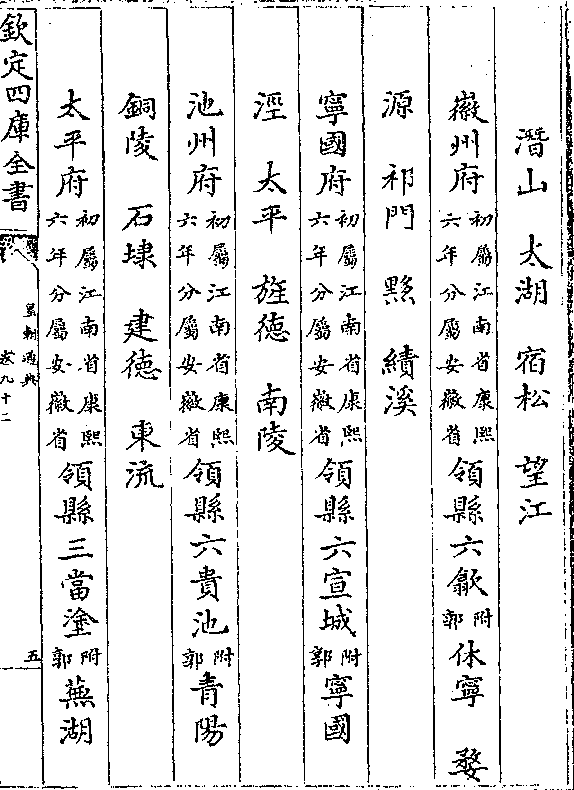 潛山 太湖 宿松 望江
徽州府初屬江南省康熙六年分屬安徽省領縣六歙附郭休寧 婺
源 祁門 黟 績溪
寧國府初屬江南省康熙六年分屬安徽省領縣六宣城附郭寧國
涇 太平 旌德 南陵
池州府初屬江南省康熙六年分屬安徽省領縣六貴池附郭青陽
銅陵 石埭 建德 東流
太平府初屬江南省康熙六年分屬安徽省領縣三當塗附郭蕪湖
欽定四庫全書
皇朝通典
卷九十二
五